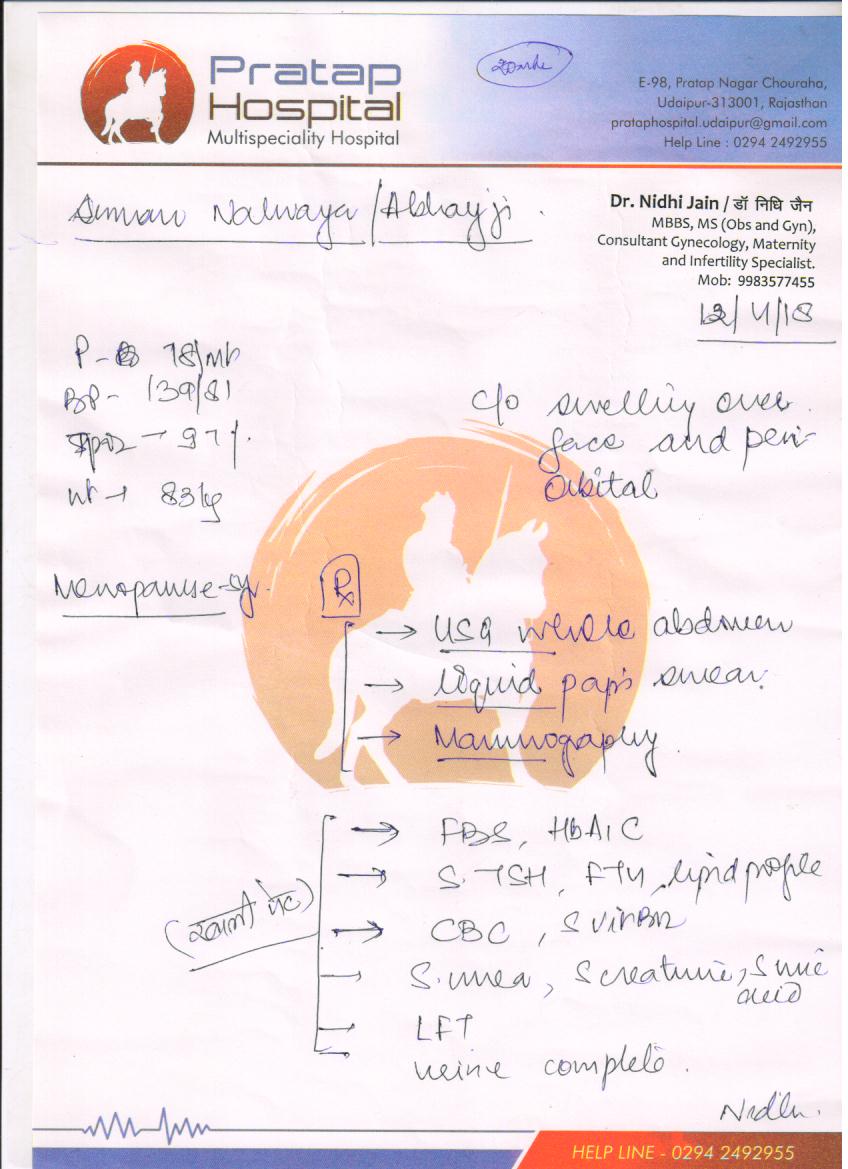 Pratap
Hospital
Multispeciality Hospital
E-98, Pratap Nagar Chouraha,
Udaipur-313001, Rajasthan
prataphospital.udaipur@gmail.com
Help Line : 0294 2492955
Suman Nalwaya / Abhay ji.
Dr. Nidhi Jain / डॉ निधि जैन
MBBS, MS (Obs and Gyn),
Consultant Gynecology, Maternity
and Infertility Specialist.
Mob: 9983577455
12/4/18
P - 78/mt
BP - 139/81
SpO2 → 97%.
wt → 83kg
c/o swelling over
face and peri-
orbital
Menopause-sy.
Rx
→ USG whole abdomen
→ liquid pap's smear.
→ Mammography.
→ FBS, HbA1C
→ S. TSH, FT4, lipid profile
→ CBC, S Vit B12
→ S. urea, S creatinine, S uric
acid
→ LFT
→ urine complete.
(खाली पेट)
Nidhi.
HELP LINE - 0294 2492955